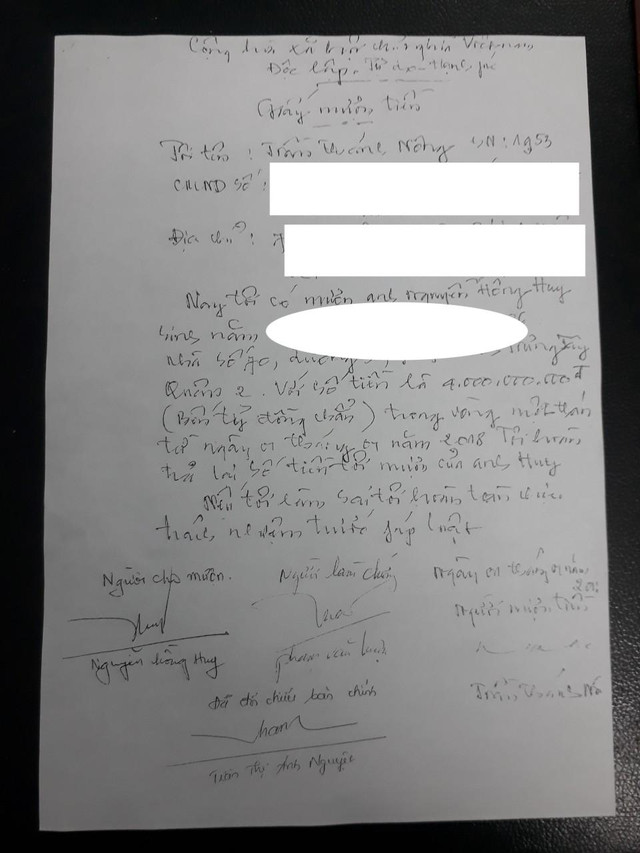 Cộng hòa xã hội chủ nghĩa Việt nam
Độc lập - Tự do - Hạnh phúc
Giấy mượn tiền
Tôi tên : Trần Quảng Nông SN: 1953
CMND số :
Địa chỉ :
Nay tôi có mượn anh Nguyễn Hồng Huy
sinh năm
nhà số 40, đường
Quận 2. Với số tiền là 4.000.000.000đ
(Bốn tỷ đồng chẵn) trong vòng một thán
từ ngày 01 tháng 01 năm 2018 Tôi hoàn
trả lại số tiền tôi mượn của anh Huy
Nếu tôi làm sai tôi hoàn toàn chịu
trách nhiệm trước pháp luật
Người cho mượn. Người làm chứng Ngày 01 tháng 01 năm
Người mượn tiền
Nguyễn Hồng Huy Phạm văn
Trần
Đã đối chiếu bản chính
Trần Thị Ánh Nguyệt